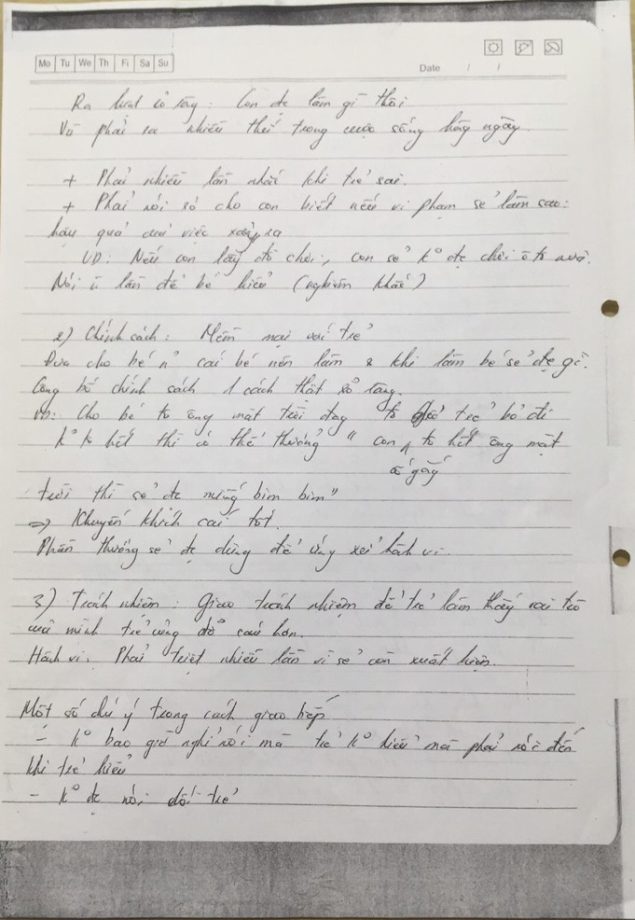 Mo Tu We Th Fi Sa Su
Date / /
Ra luật rõ ràng: Con đc làm gì thôi
Và phải ra nhiều thứ trong cuộc sống hàng ngày
+ Phải nhiều lần nhắc khi trẻ sai.
+ Phải nói rõ cho con biết nếu vi phạm sẽ làm sao:
hậu quả của việc xảy ra
VD: Nếu con lấy đồ chơi, con sẽ kº đc chơi ô tô nữa.
Nói lần để bé hiểu (nghiêm khắc)
2) Chính sách: Mềm mại với trẻ
Đưa cho bé cái bé nên làm & khi làm bé sẽ đc gì.
Công bố chính sách 1 cách thật rõ ràng.
VD: Cho bé tô ông mặt trời đang tô trẻ bỏ đi
kº tô hết thì có thể thưởng " con cố gắng tô hết ông mặt
trời thì sẽ đc miếng bim bim"
=> Khuyến khích cái tốt.
Phần thưởng sẽ đc dùng để ứng xử hành vi.
3) Trách nhiệm: Giao trách nhiệm để trẻ làm thấy vai trò
của mình trẻ cũng đỡ hơn.
Hành vi: Phải triệt nhiều lần vì sẽ còn xuất hiện.
Một số chú ý trong cách giao tiếp
- Kº bao giờ nghỉ nói mà trẻ kº hiểu mà phải nói đến
khi trẻ hiểu
- Kº đc nói dối trẻ